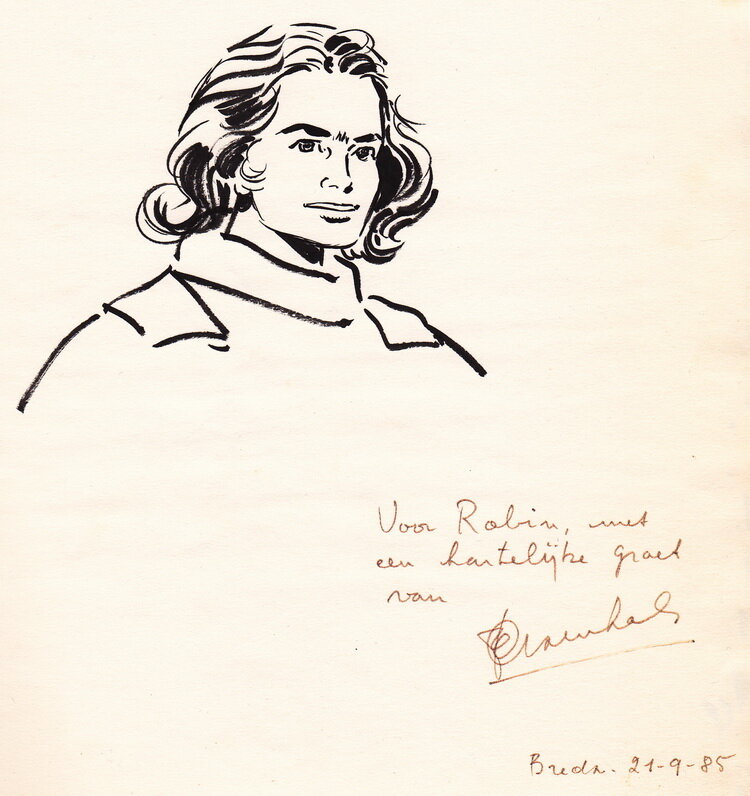 Voor Robin, met
een hartelijke groet
van
Breda. 21-9-85